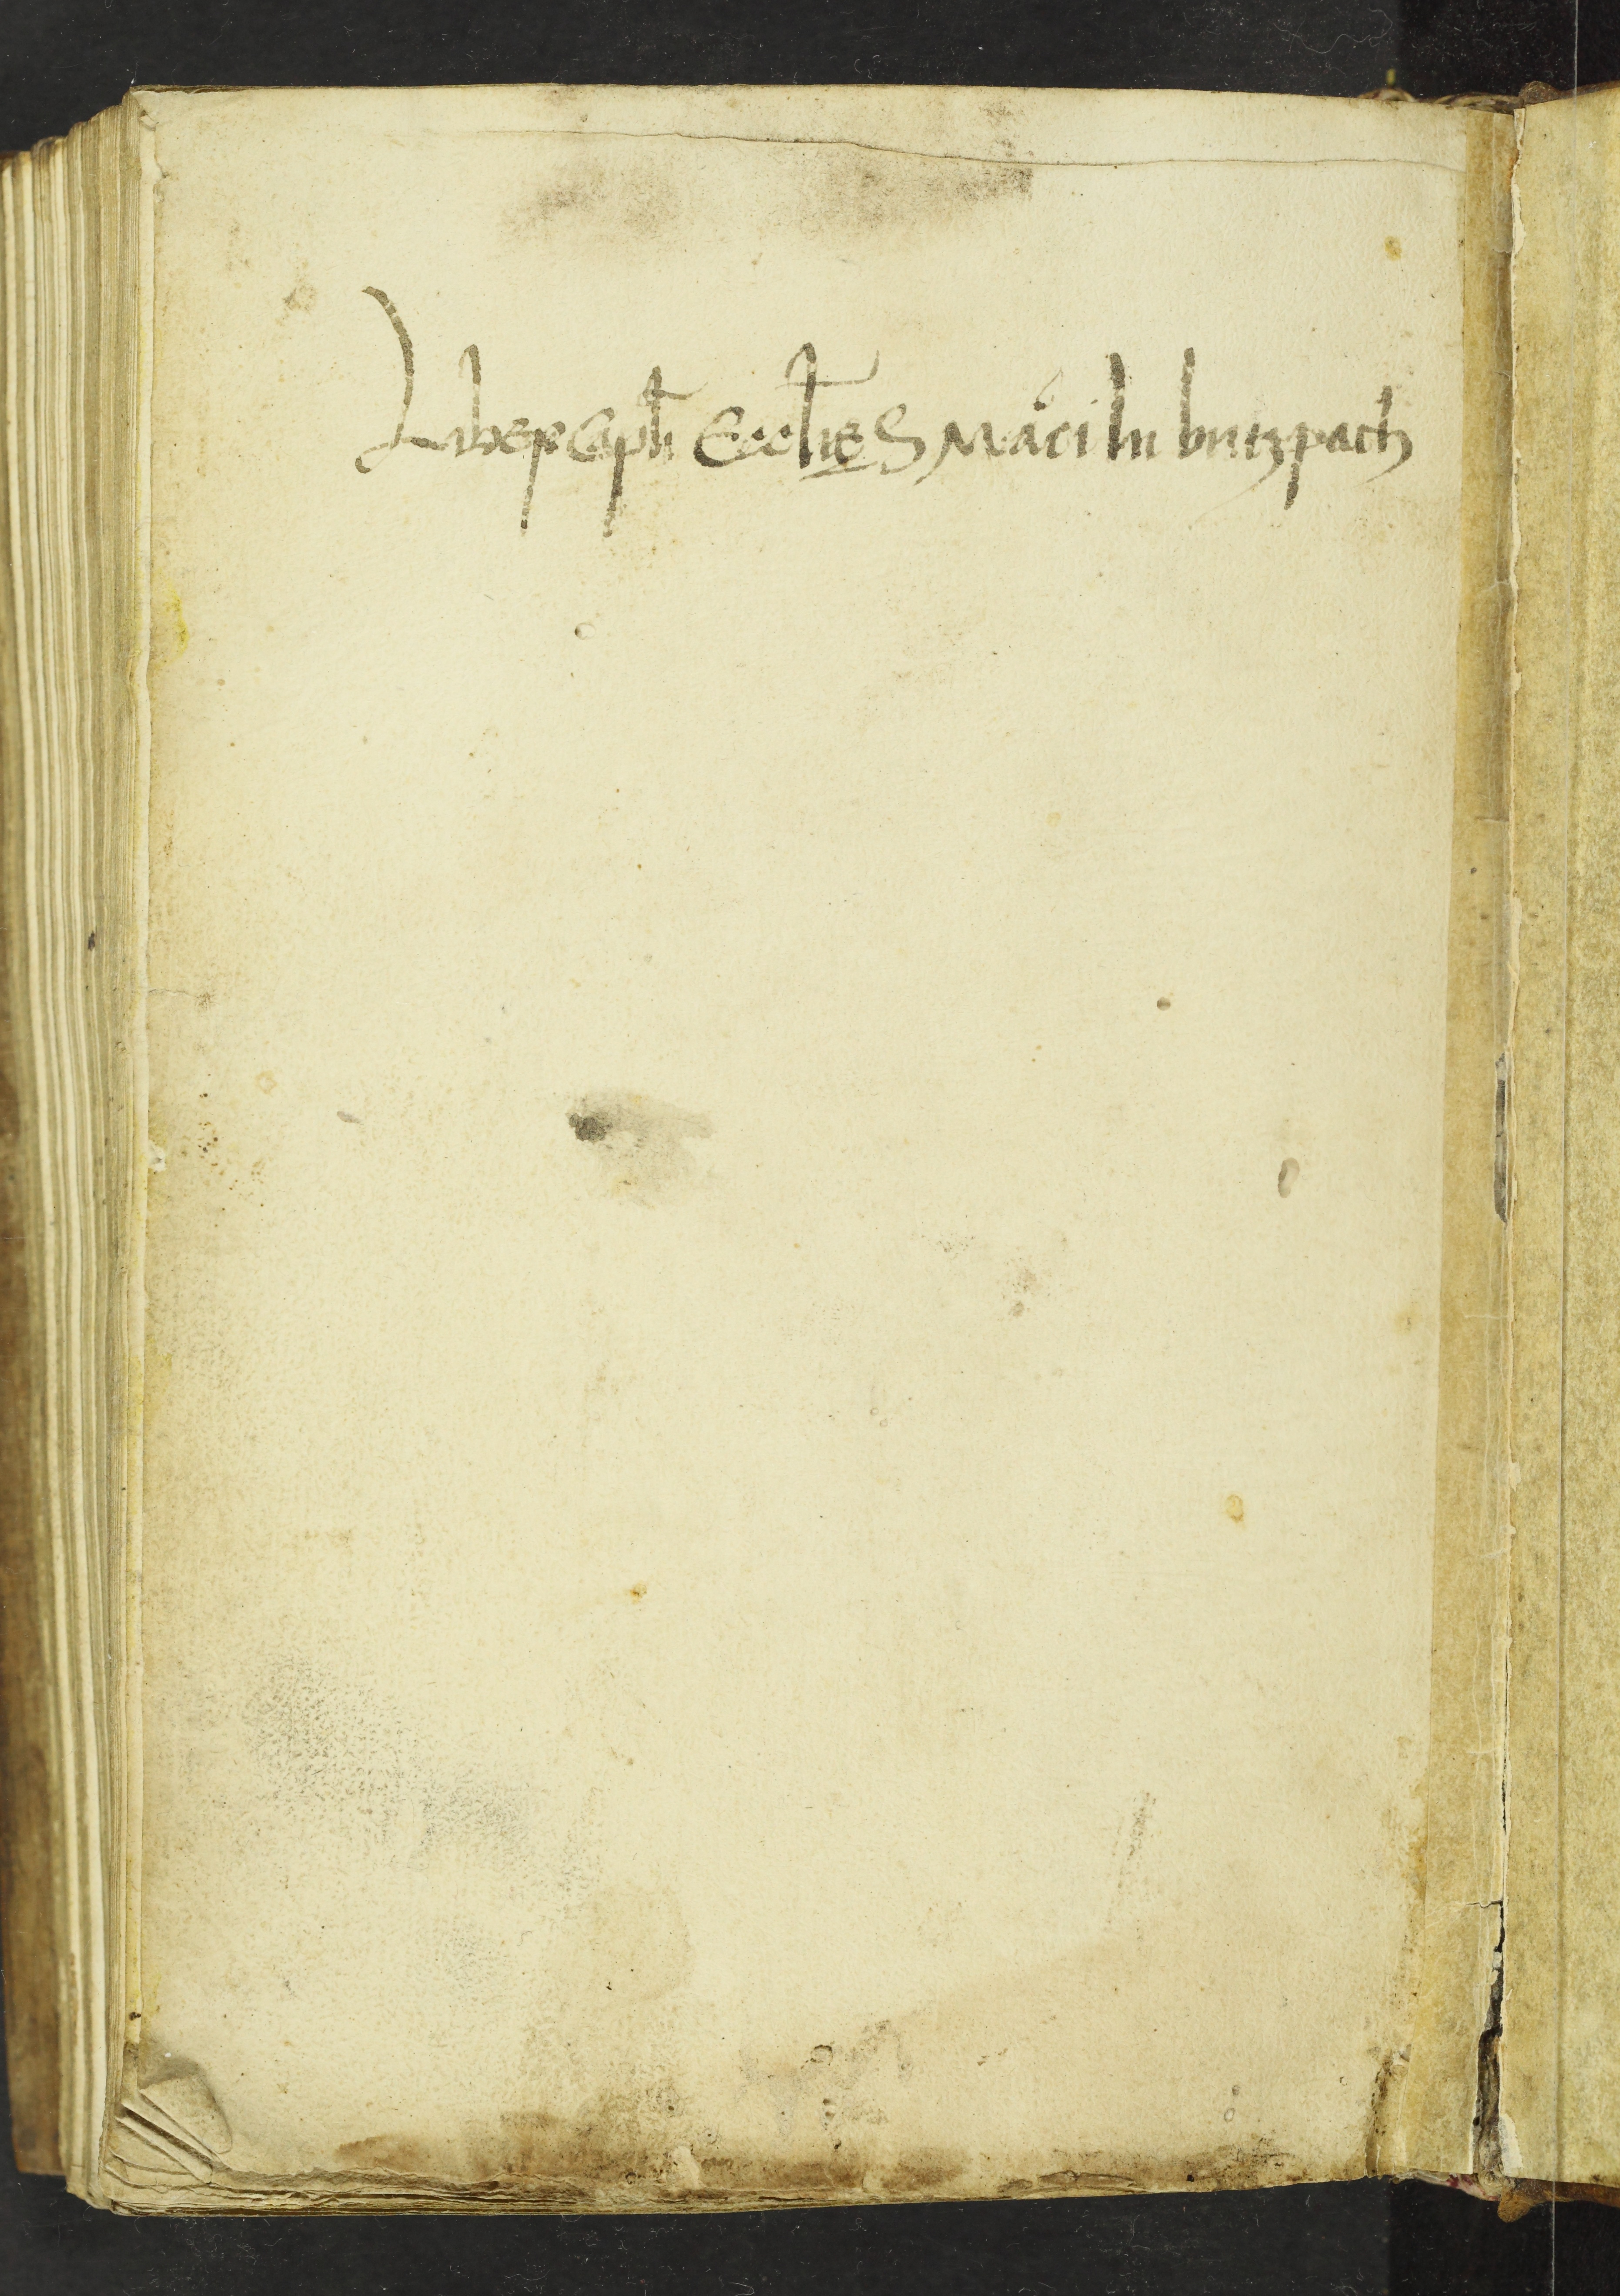 Liber Capłi Eccłie S Marci In butzpach